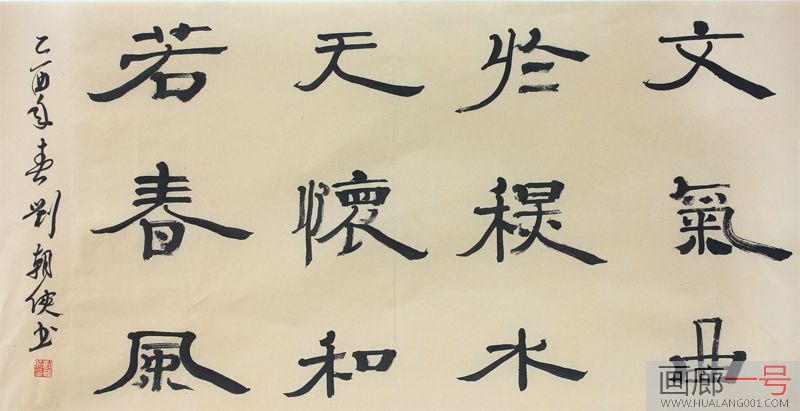 文氣
於水
天懷和
若春風
乙酉年春劉朝俠书
画廊一号
WWW.HUALANG001.COM